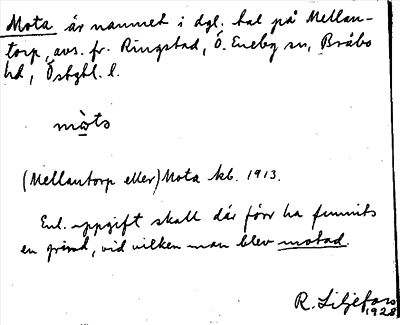 Mota är namnet i dgl. tal på Mellan-
torp, avs. fr. Ringstad, Ö. Eneby sn, Bråbo
hd, Östgtl. l.
mòta
(Mellantorp eller) Mota kb. 1913.
Enl. uppgift skall där förr ha funnits
en grind, vid vilken man blev motad.
R. Liljefors
1928